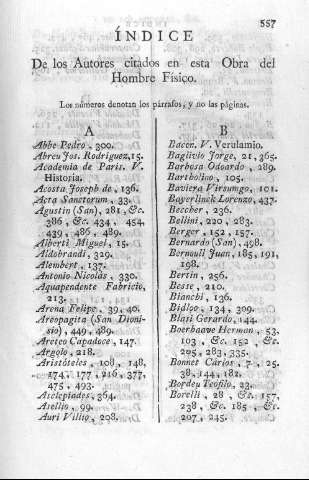 557
ÍNDICE
De los Autores citados en esta Obra del
Hombre Fisico.
Los números denotan los párrafos, y no las páginas.
A
Abbe Pedro, 300.
Abreu Jos. Rodriguez, 15.
Academia de Paris. V.
Historia.
Acosta Joseph de, 136.
Acta Sanctorum, 33.
Agustin (San), 281, &c.
386, &c. 434, 454,
439, 486, 489.
Alberti Miguel, 15.
Aldobrandi, 329.
Alembert, 137.
Antonio Nicolás, 330.
Aquapendente Fabricio,
213.
Arena Felipe, 39, 40.
Areopagita (San Dioni-
sio), 449, 489.
Areteo Capadoce, 147.
Argolo, 218.
Aristóteles, 108, 148,
174, 177, 216, 377,
475, 493.
Asclepiades, 364.
Asellio, 99.
Auri Villio, 208.
B
Bacon, V. Verulamio.
Baglivio Jorge, 21, 365.
Barbosa Odoardo, 289.
Bartholino, 105.
Baviera Virsumgo, 101.
Bayerlinck Lorenzo, 437.
Beccher, 236.
Bellini, 220, 283.
Berger, 152, 157.
Bernardo (San), 498.
Bernoull Juan, 185, 191,
198.
Bertin, 256.
Besse, 210.
Bianchi, 136.
Bidloo, 134, 309.
Blasi Gerardo, 144.
Boerhaave Herman, 53.
103, &c. 152, &c.
205, 283, 335.
Bonnet Cárlos, 7, 25.
38, 144, 182.
Bordeu Teofilo, 23.
Borelli, 28, &c. 157,
238, &c. 185, &c.
207, 245.